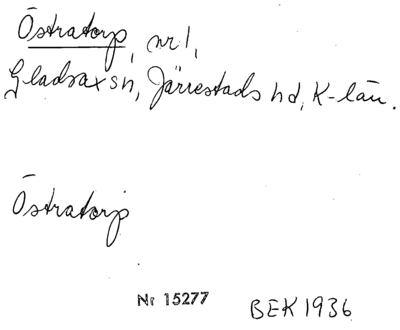 Östratorp, nr 1,
Gladsax sn, Järrestads hd, K-län.
Östratorp
Nr 15277 BEK 1936